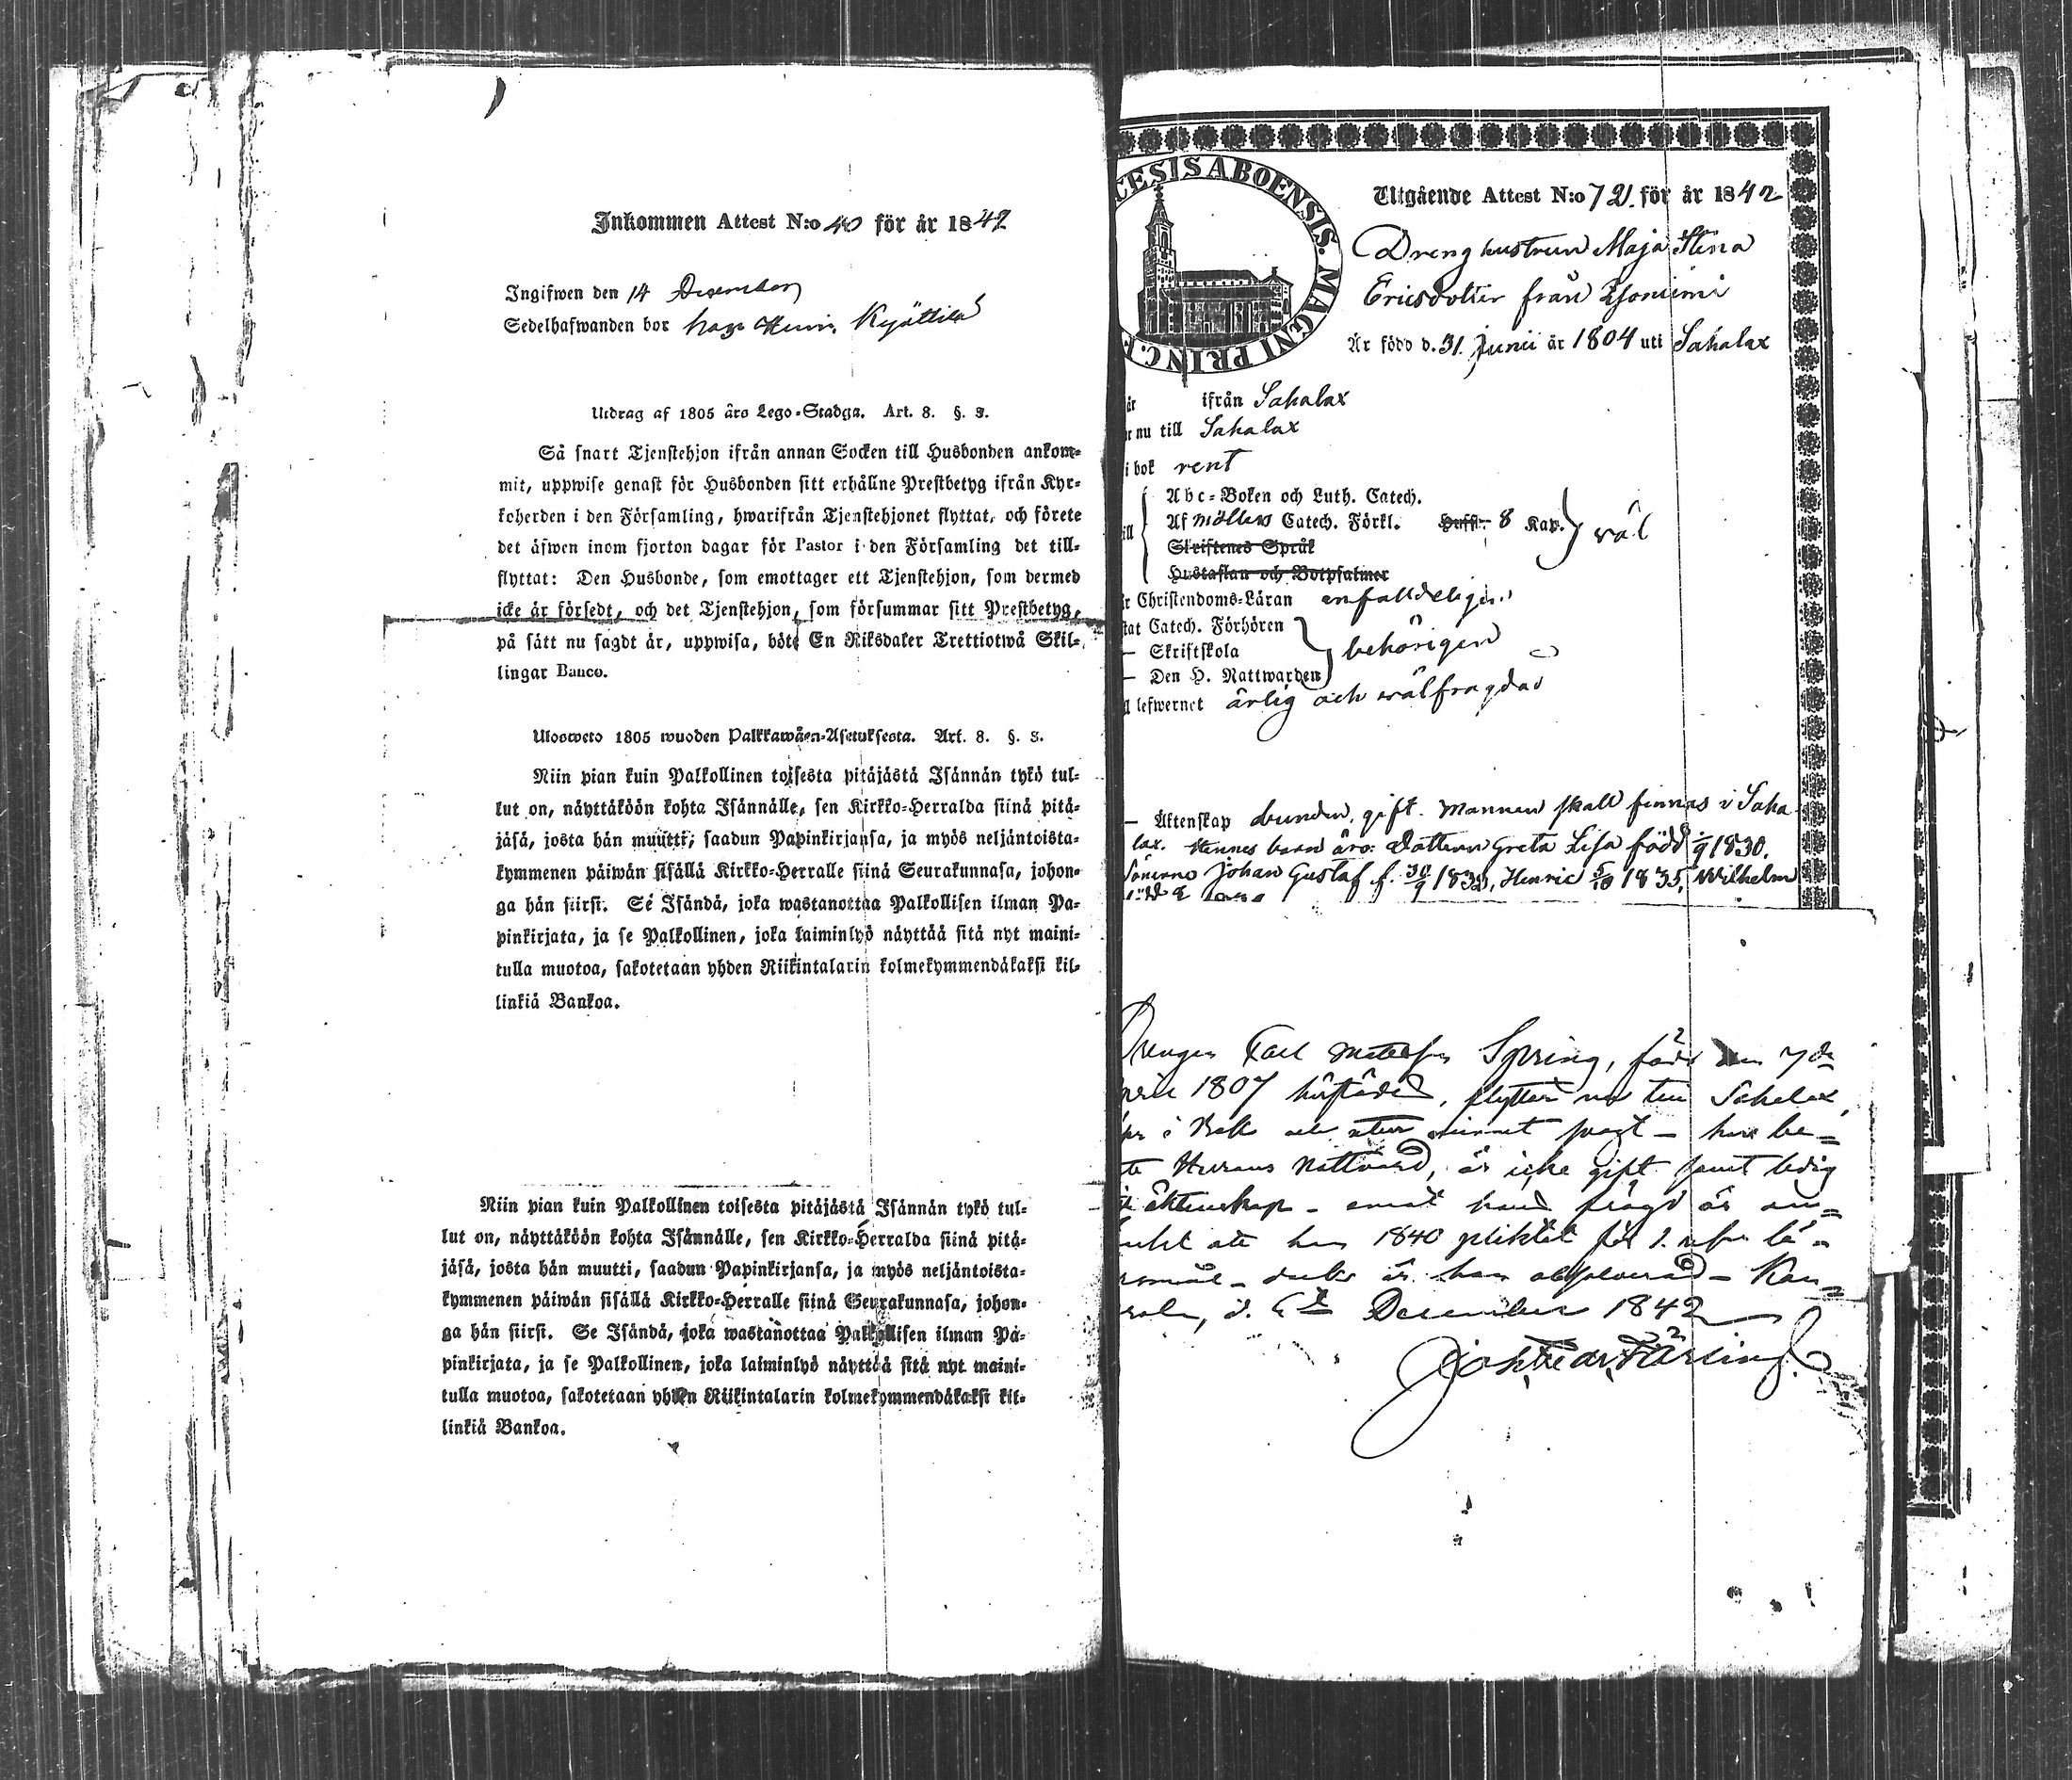 Inkommen Attest N:o 40 för år 1842
Ingifwen den 14 December
Sedelhafwanden bor hos Kyöttilä
Utdrag af 1805 års Lego-Stadga. Art. 8. §. 3.
Så snart Tjenstehjon ifrån annan Socken till Husbonden ankom-
mit, uppwise genast för Husbonden sitt erhållne Prestbetyg ifrån Kyr-
koherden i den Församling, hwarifrån Tjenstehjonet flyttat, och förete
det äfwen inom fjorton dagar för Pastor i den Församling det till-
flyttat: Den Husbonde, som emottager ett Tjenstehjon, som dermed
icke är försedt, och det Tjenstehjon, som försummar sitt Prestbetyg,
på sätt nu sagdt är, uppwisa, böte En Riksdaler Trettiotwå Skil-
lingar Banco.
Ulosweto 1805 wuoden Palkkawäen-Asetuksesta. Art. 8. §. 3.
Niin pian kuin Palkollinen toisesta pitäjästä Isännän tykö tul-
lut on, näyttäköön kohta Isännälle, sen Kirkko-Herralda siinä pitä-
jäsä, josta hän muutti, saadun Papinkirjansa, ja myös neljäntoista-
kymmenen päiwän sisällä Kirkko-Herralle siinä Seurakunnasa, johon-
ga hän siirsi. Se Isändä, joka wastanottaa Palkollisen ilman Pa-
pinkirjata, ja se Palkollinen, joka laiminlyö näyttää sitä nyt maini-
tulla muotoa, sakotetaan yhden Riikintalarin kolmekymmendäkaksi kil-
linkiä Bankoa.
Niin pian kuin Palkollinen toisesta pitäjästä Isännän tykö tul-
lut on, näyttäköön kohta Isännälle, sen Kirkko-Herralda siinä pitä-
jäsä, josta hän muutti, saadun Papinkirjansa, ja myös neljäntoista-
kymmenen päiwän sisällä Kirkko-Herralle siinä Seurakunnasa, johon-
ga hän siirsi. Se Isändä, joka wastanottaa Palkollisen ilman Pa-
pinkirjata, ja se Palkollinen, joka laiminlyö näyttää sitä nyt maini-
tulla muotoa, sakotetaan yhden Riikintalarin kolmekymmendäkaksi kil-
linkiä Bankoa.
CESIS ABOENSIS. MAGNI PRINC.
Utgående Attest N:o 72. för år 1842
Dreng hustrun Maja Stina
Ericsdotter från
Är född d. 31. Junii år 1804 uti Sahalax
är ifrån Sahalax
nu till Sahalax
i bok rent
Abc-Boken och Luth. Catech.
Af Möllers Catech. Förkl. Hufst. 8 Kap. väl
Skriftenes Språk
Hustaflan och Botpsalmer
Christendoms-Läran enfaldeligen
Catech. Förhören
— Skriftskola behörigen
— Den H. Nattwarden
lefwernet ärlig och wälfrägdad
— Äktenskap bunden, gift. Mannen skall finnas i Saha
lax. Hennes barn äro: Dottren Greta Lisa född 1830.
Sönerne Johan Gustaf f. 30/9 1832, Henric 5/10 1835, Wilhelm
Drengen Carl Matsson Spring, född den 7de
1807 härstädes, flyttar nu till Sahalax,
i Bok
Herrans Nattvard, är icke gift samt ledig
äktenskap
1840 pliktat för
är han absolverad – Kan-
d. December 1842